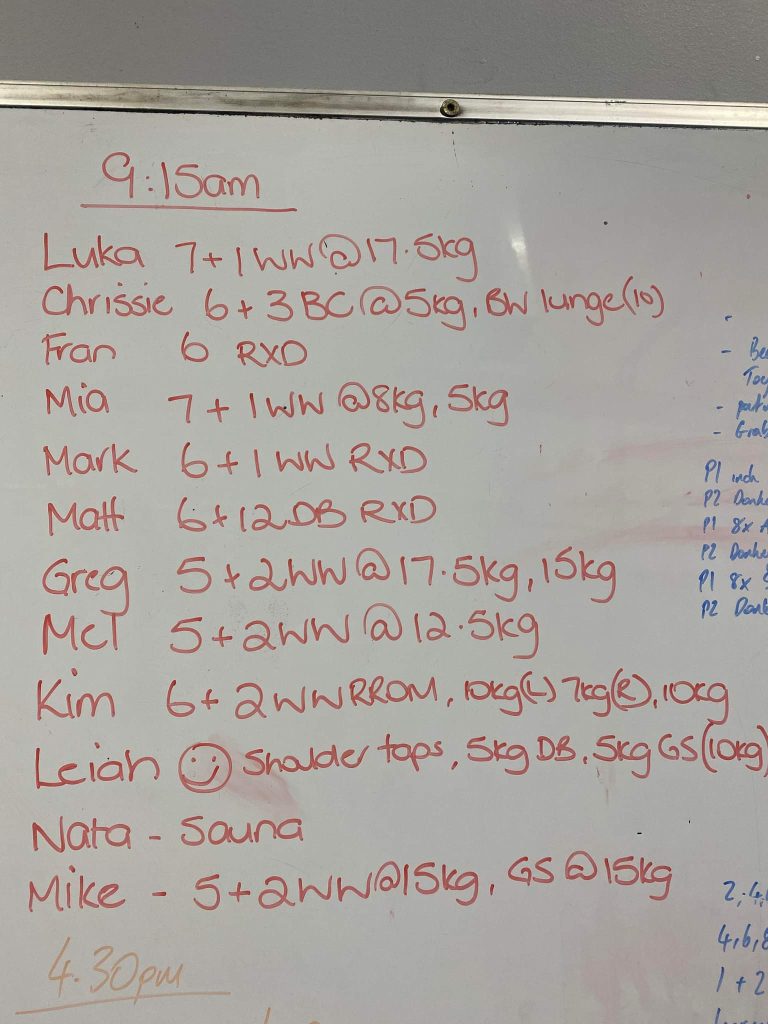 9:15am
Luka 7+1WW@17.5kg
Chrissie 6+3BC@5kg, BW lunge(10)
Fran 6 RXD
Mia 7+1WW @8kg, 5kg
Mark 6+1WW RXD
Matt 6+12DB RXD
Greg 5+2WW@17.5kg, 15kg
McT 5+2WW@12.5kg
Kim 6+2WWRROM, 10kg(L) 7kg(R), 10kg
Leiah Shoulder taps, 5kg DB, 5kg GS(10kg)
Nata - Sauna
Mike - 5+2WW@15kg, GS@15kg
4.30pm
-
-
-
- Grab
P1 inch
P2 Donke
P1 8x
P2 Donke
P1 8x
P2
2,4,
4,6,8
1+2